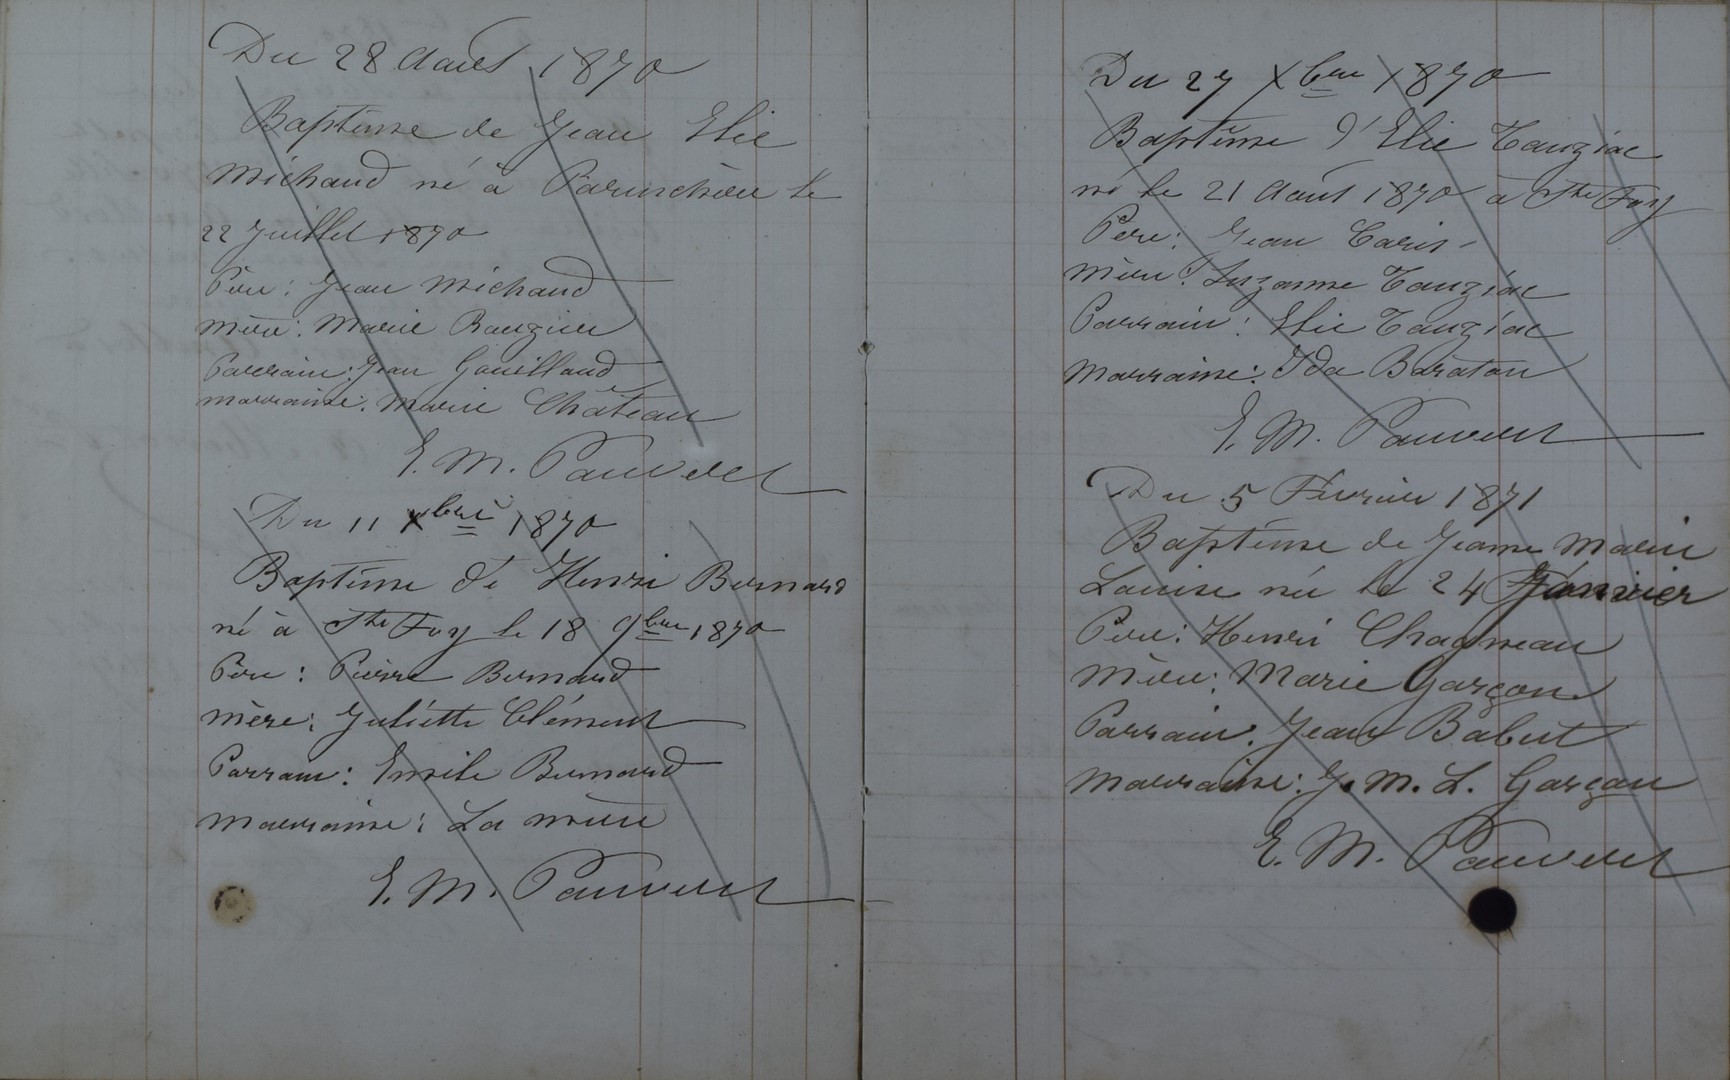 Du 28 Août 1870
Baptême de Jean Elie
Michaud né à le
22 Juillet 1870
Père: Jean Michaud
Mère: Marie Rauzier
Parrain: Jean Gouilland
Marraine: Marie Château
E. M. Pauvert
Du 11 Xbre 1870
Baptême de Henri Bernard
né à Ste Foy le 18 9bre 1870
Père: Pierre Bernard
Mère: Juliette Clément
Parrain: Emile Bernard
Marraine: La mère
E. M. Pauvert
Du 27 Xbre 1870
Baptême d'Elie Tauziac
né le 21 Août 1870 à Ste Foy
Père: Jean Caris
Mère: Suzanne Tauziac
Parrain: Elie Tauziac
Marraine: Ida Baraton
E. M. Pauvert
Du 5 Février 1871
Baptême de Jeanne Marie
Louise née le 24 Janvier
Père: Henri Chagneau
Mère: Marie Garçon
Parrain: Jean Babut
Marraine: J. M. L. Garçon
E. M. Pauvert